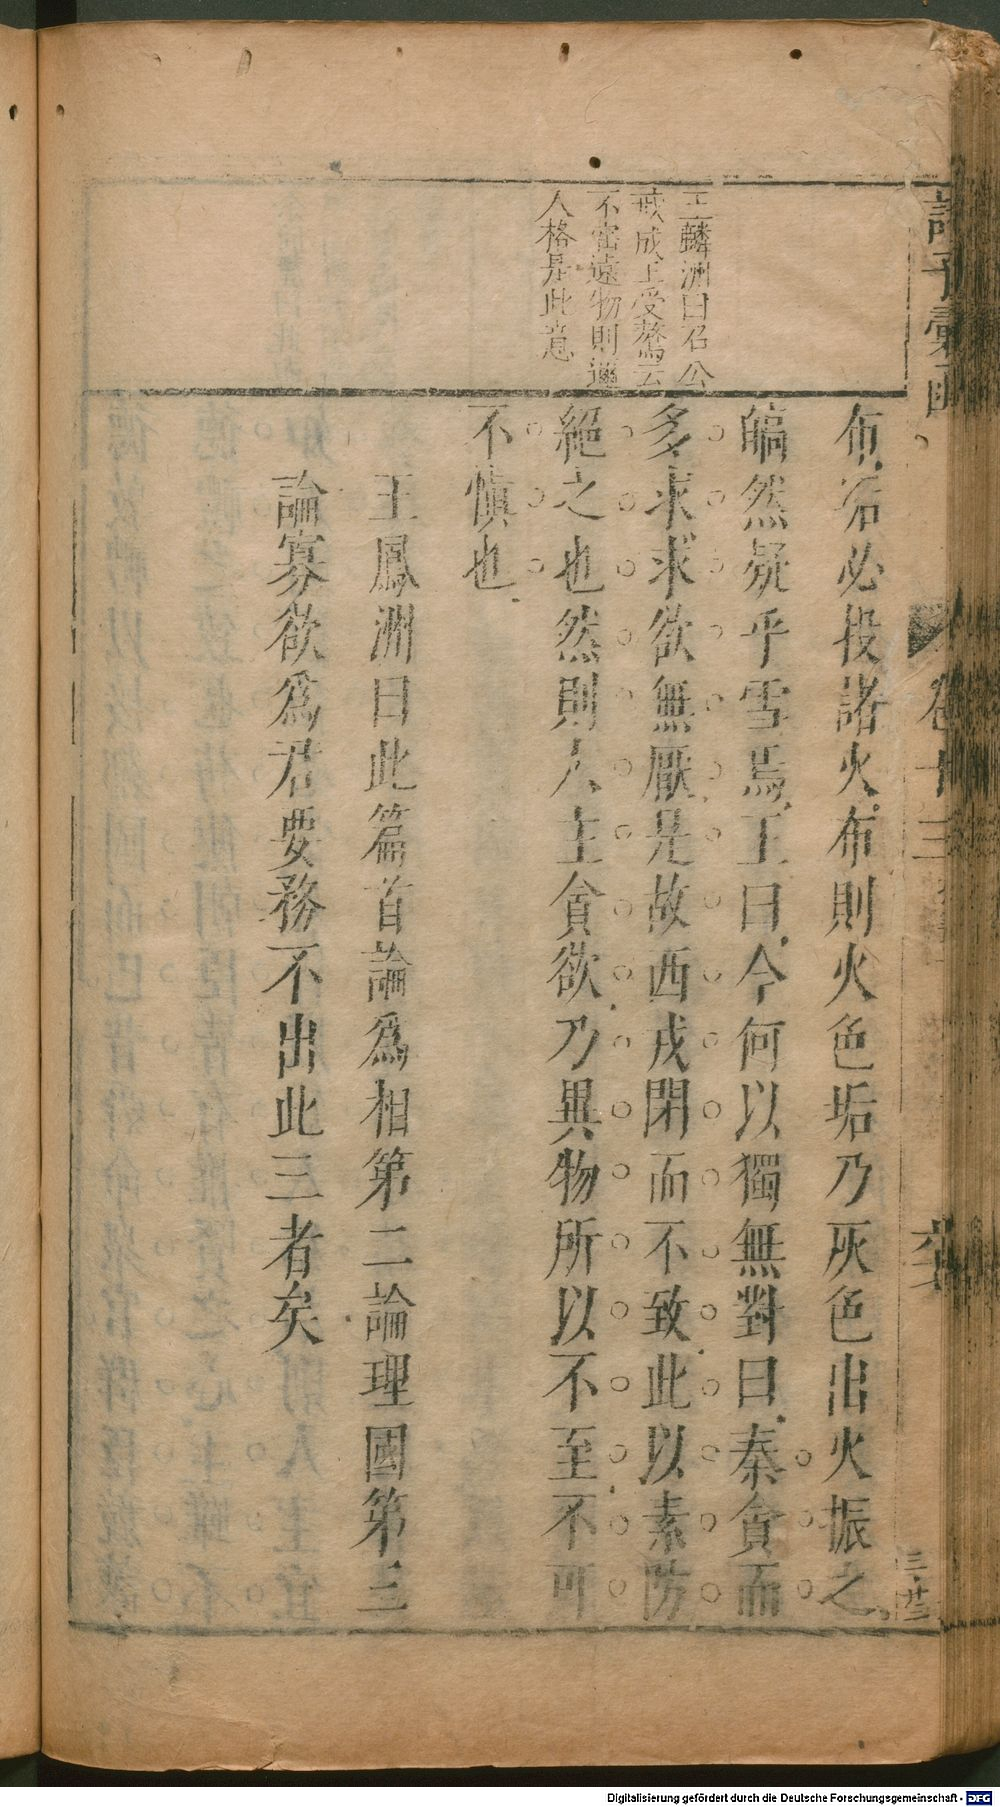 諸子彙函
卷十三
三廿三
王麟洲曰召公
戒成王受獒云
不寶遠物則邇
人格是此意
布者必投諸火布則火色垢乃灰色出火振之
皜然疑乎雪焉王曰今何以獨無對曰秦貪而
多求求欲無厭是故西戎閉而不致此以素防
絕之也然則人主貪欲乃異物所以不至不可
不慎也
王鳳洲曰此篇首論爲相第二論理國第三
論寡欲爲君要務不出此三者矣
Digitalisierung gefördert durch die Deutsche Forschungsgemeinschaft - DFG